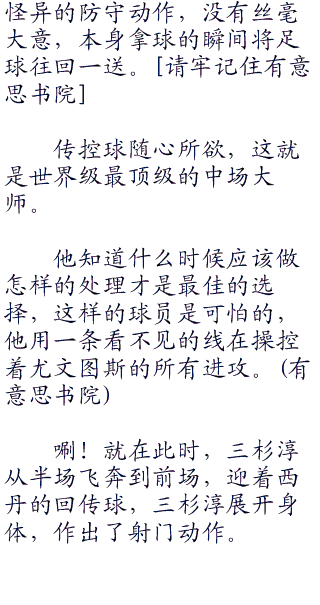 怪异的防守动作，没有丝毫
大意，本身拿球的瞬间将足
球往回一送。[请牢记住有意
思书院]
传控球随心所欲，这就
是世界级最顶级的中场大
师。
他知道什么时候应该做
怎样的处理才是最佳的选
择，这样的球员是可怕的，
他用一条看不见的线在操控
着尤文图斯的所有进攻。(有
意思书院)
唰！就在此时，三杉淳
从半场飞奔到前场，迎着西
丹的回传球，三杉淳展开身
体，作出了射门动作。